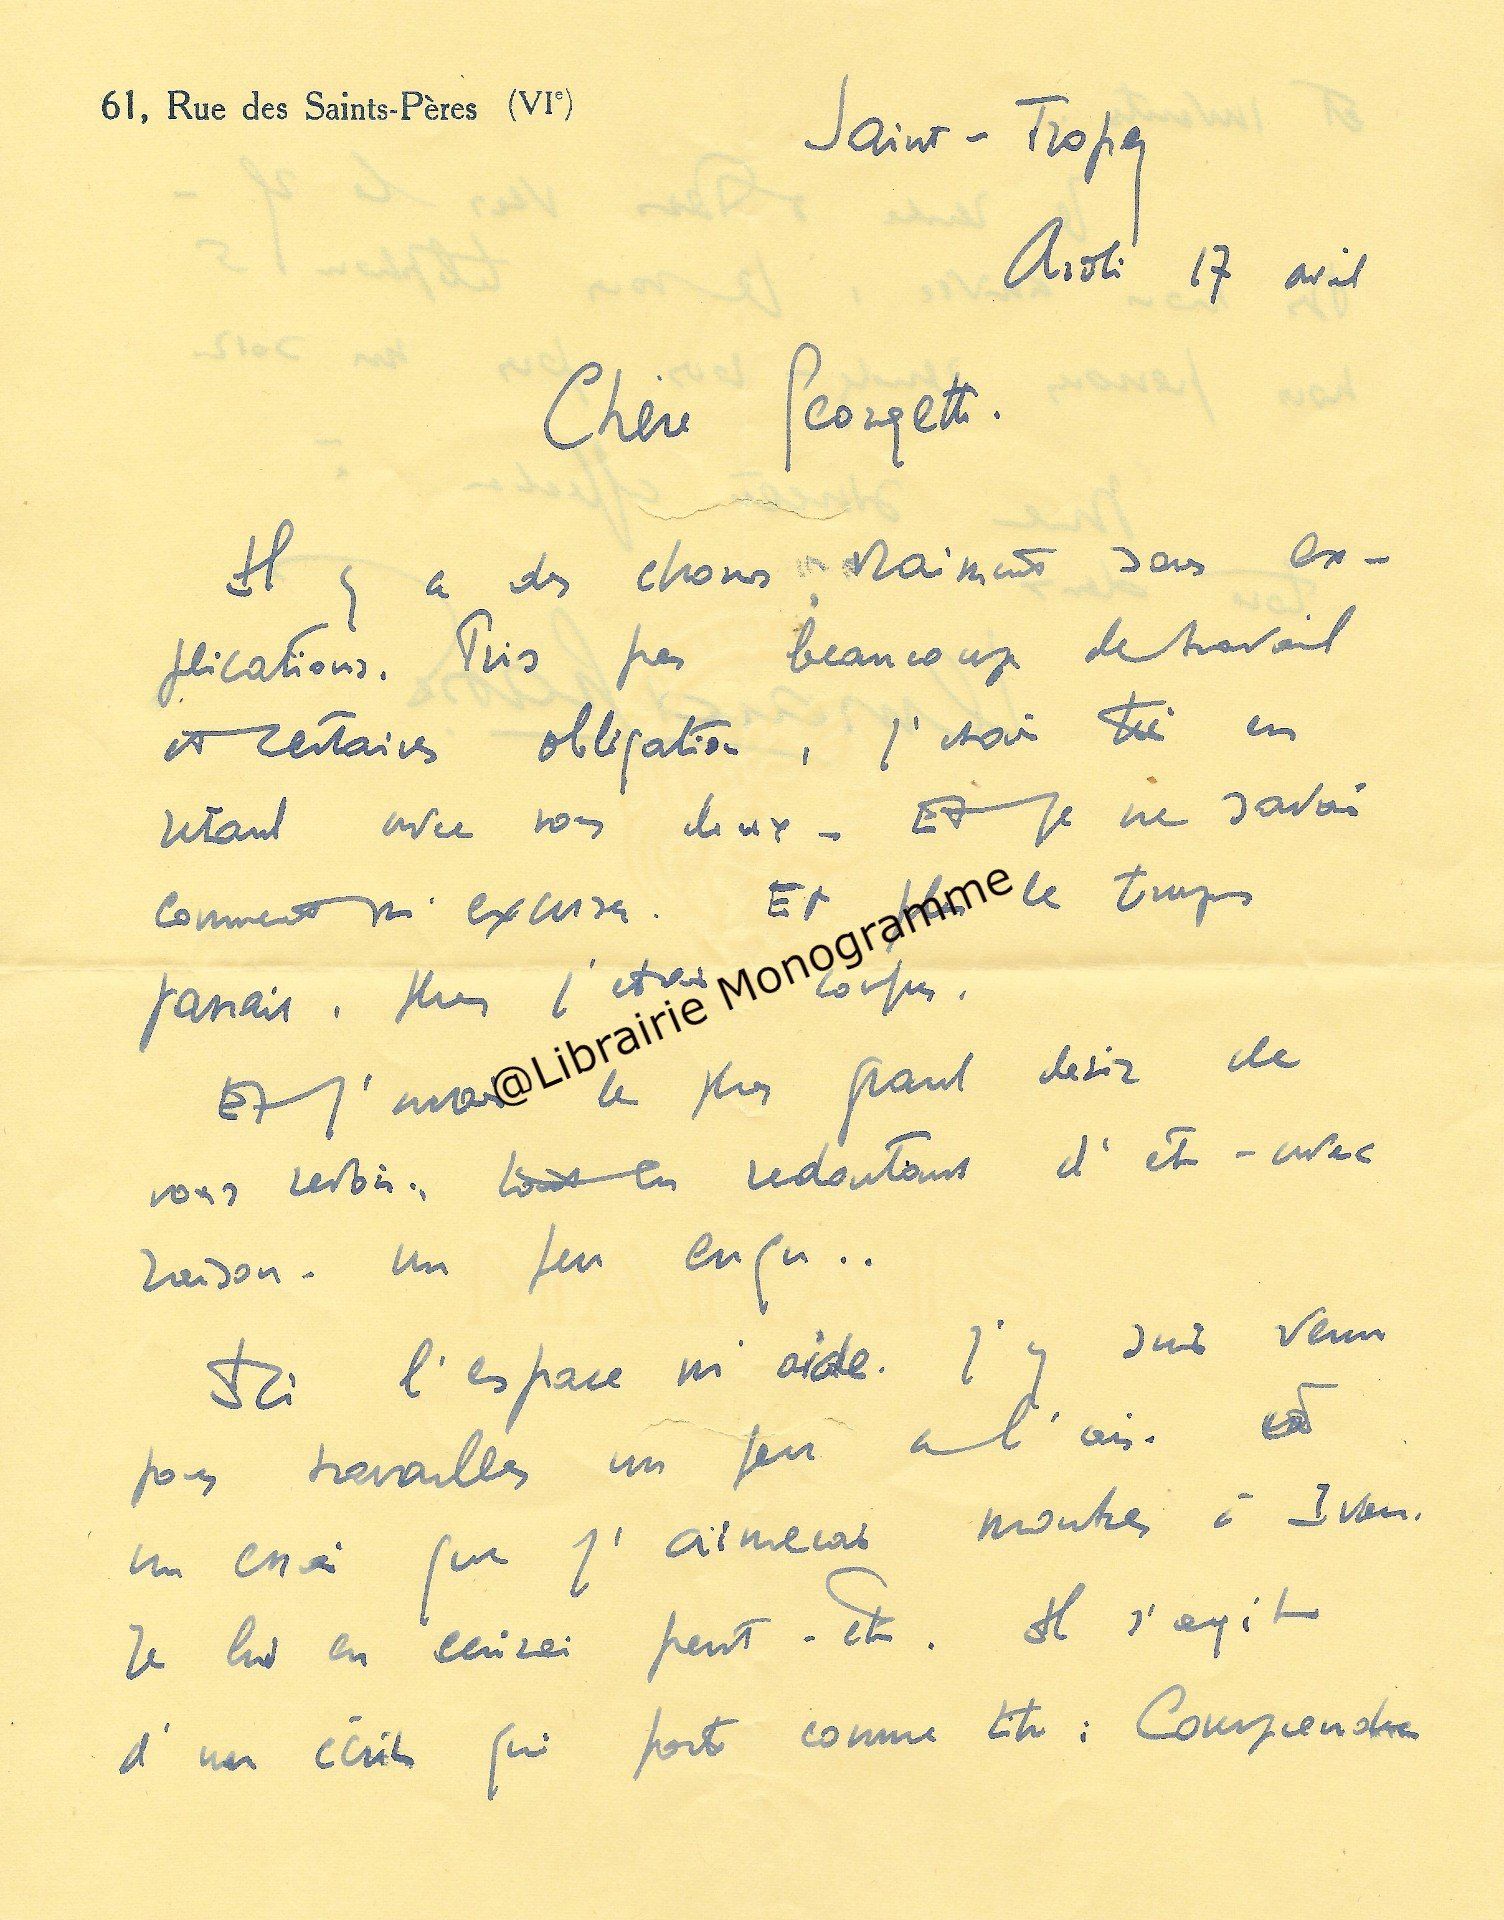 61, Rue des Saints-Pères (VIe)
Saint-Tropez
17 avril
Chère Georgette.
Il y a des choses, vraiment sans ex-
plications. Pris par beaucoup de travail
et certaines obligation, j'avais été en
retard avec vous deux - Et je ne savais
comment m'excuser. Et plus le temps
passait, plus j'étais coupa.
Et j'avais le plus grand désir de
vous revoir., tout en redoutant d'être - avec
raison - un peu engu..
Ici l'espace m'aide. J'y suis venu
pour travailler un peu à l'aise. Et
un essai que j'aimerais montrer à Ivan.
Je lui en écrirai peut-être. Il s'agit
d'un écrit qui porte comme titre : Comprendre
@Librairie Monogramme